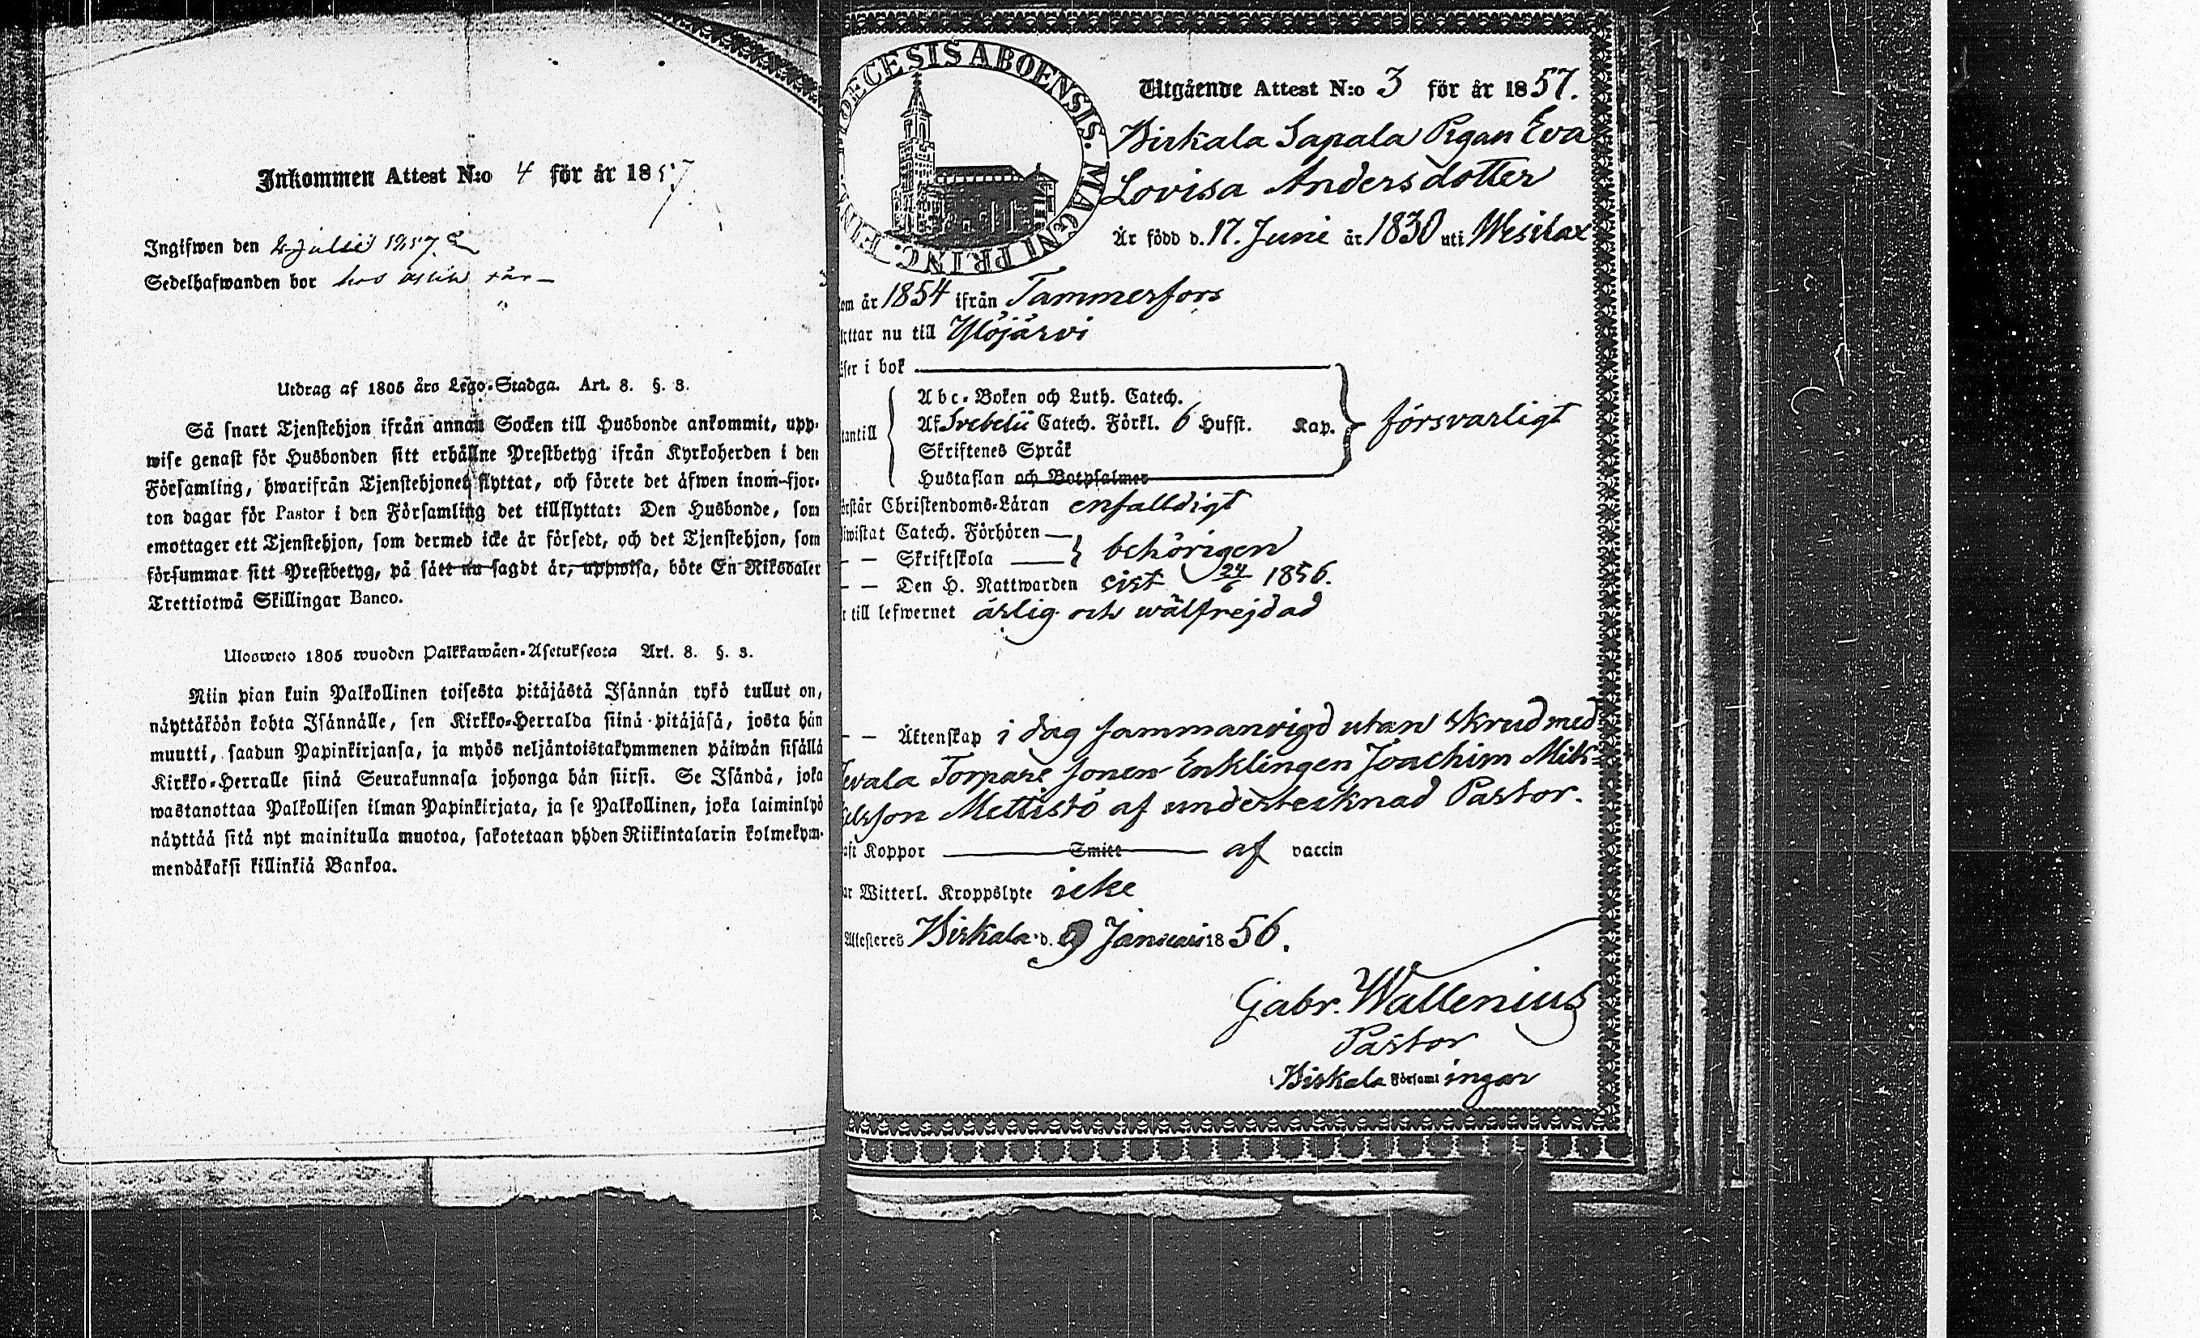 Inkommen Attest N:o 4 för år 1857.
Ingifwen den Julii 1857.
Sedelhafwanden bor hos
Utdrag af 1805 års Lego-Stadga. Art. 8. §. 3.
Så snart Tjenstehjon ifrån annan Socken till Husbonde ankommit, upp-
wise genast för Husbonden sitt erhållne Prestbetyg ifrån Kyrkoherden i den
Församling, hwarifrån Tjenstehjonet flyttat, och förete det äfwen inom fjor-
ton dagar för Pastor i den Församling det tillflyttat: Den Husbonde, som
emottager ett Tjenstehjon, som dermed icke är försedt, och det Tjenstehjon, som
försummar sitt Prestbetyg, på sätt nu sagdt är, uppwisa, böte En Riksdaler
Trettiotwå Skillingar Banco.
Ulosweto 1805 wuoden Palkkawäen-Asetuksesta Art. 8. §. 3.
Niin pian kuin Palkollinen toisesta pitäjästä Isännän tykö tullut on,
näyttäköön kohta Isännälle, sen Kirkko-Herralda siinä pitäjäsä, josta hän
muutti, saadun Papinkirjansa, ja myös neljäntoistakymmenen päiwän sisällä
Kirkko-Herralle siinä Seurakunnasa johonga hän siirsi. Se Isändä, joka
wastanottaa Palkollisen ilman Papinkirjata, ja se Palkollinen, joka laiminlyö
näyttää sitä nyt mainitulla muotoa, sakotetaan yhden Riikintalarin kolmekym-
mendäkaksi killinkiä Bankoa.
DIOECESIS ABOENSIS. MAGNI PRINC. FINL.
Utgående Attest N:o 3 för år 1857.
Birkala Sapala Pigan Eva
Lovisa Andersdotter
Är född d. 17. Juni år 1830 uti Wesilax
om år 1854 ifrån Tammerfors
yttar nu till Ylöjärvi
äser i bok
Abc-Boken och Luth. Catech.
utantill Af Svebelii Catech. Förkl. 6 Hufst. Kap. försvarligt
Skriftenes Språk
Hustaflan och Botpsalmer
örstår Christendoms-Läran enfalldigt
Biwistat Catech. Förhören
— — Skriftskola behörigen
— — Den H. Nattwarden sist 24/6 1856.
r till lefwernet ärlig och wälfrejdad
— — Äktenskap i dag sammanvigd utan skrud med
Torpare sonen Enklingen Joachim Mik-
elsson Mettistö af undertecknad Pastor.
aft Koppor Smitt af vaccin
ar Witterl. Kroppslyte icke
Attesteres Birkala d. 9 Januari 1856.
Gabr. Wallenius
Pastor
i Birkala Församlingar